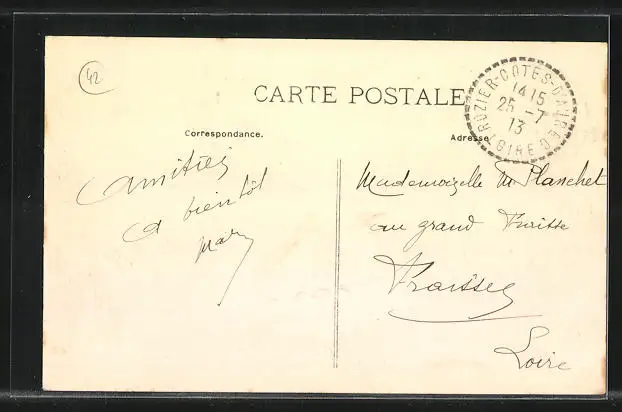 42
CARTE POSTALE
ROZIER-COTES-D'AUREC
14 15
25 -7
13
LOIRE
Correspondance.
Adresse
Amitiés
A bientôt
Mary
Mademoizelle M Planchet
au grand
Fraisse
Loire